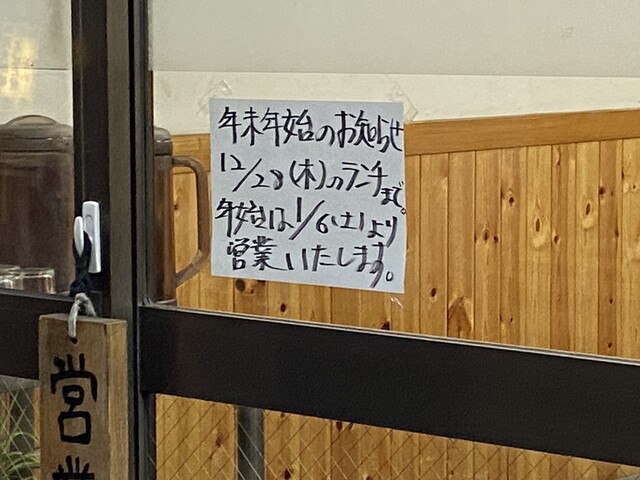 年末年始のお知らせ
12/28(木)のランチまで。
年始は1/6(土)より
営業いたします。
営業